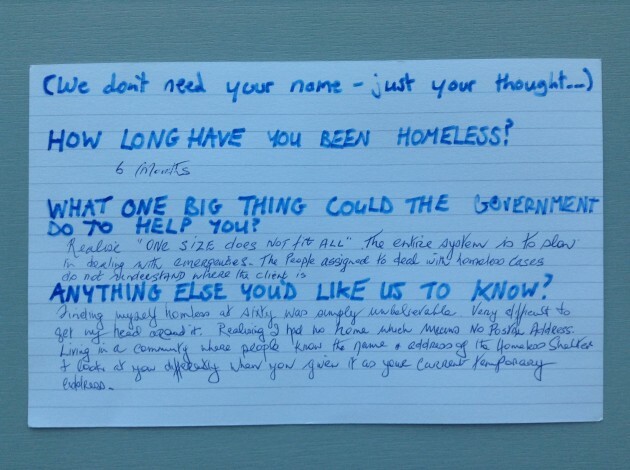 (We don't need your name - just your thought...)
HOW LONG HAVE YOU BEEN HOMELESS?
6 Months
WHAT ONE BIG THING COULD THE GOVERNMENT
DO TO HELP YOU?
Realise "ONE SIZE does NOT fit ALL" The entire system is to slow
in dealing with emergencies. The People assigned to deal with homeless cases
do not understand where the client is
ANYTHING ELSE YOU'D LIKE US TO KNOW?
Finding myself homless at sixty was simply unbelievable. Very difficult to
get my head around it. Realising I had no home which means No Postal Address.
Living in a community where people know the name + address of the Homeless Shelter
+ look at you differently when you given it as your current temporary
address.